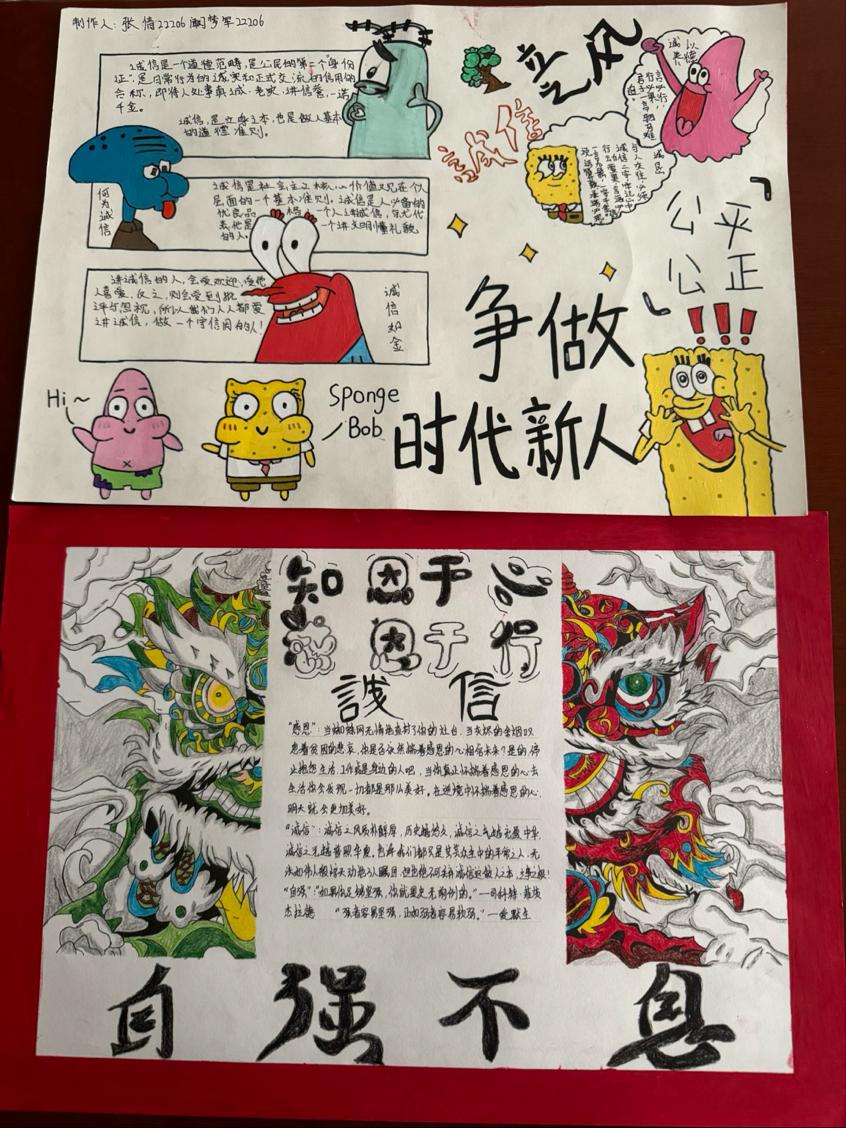 制作人：张倩22206 阚梦军22206
诚信是一个道德范畴，是公民的第二个"身份
证"，是日常行为的诚实和正式交流的信用的
合称，即待人处事真诚、老实、讲信誉，一诺
千金。
诚信，是立身之本，也是做人基本
的道德准则。
何为诚信
诚信是社会主义核心价值观在个人
层面的一个基本准则。诚信是人必备的
优良品格，一个人讲诚信，就代
表他是一个讲文明懂礼貌
的人。
讲诚信的人，会受欢迎，受他
人喜爱，反之，则会受到批
评与忽视，所以我们人人都要
讲诚信，做一个守信用的人！
诚信如金
Hi~
Sponge
Bob
立
风
诚信
「公平
公正」
!!!
争做
时代新人
知恩于心
感恩于行
誠信
"感恩"：当蜘蛛网无情地查封了你的灶台，当灰烬的余烟叹
息着贫困的悲哀，你是否依然揣着感恩的心相信未来？是的，停
止抱怨生活、工作或是身边的人吧，当你真正怀揣着感恩的心去
生活你会发现一切都是那么美好。在逆境中怀揣着感恩的心，
明天就会更加美好。
"诚信"：诚信之风质朴醇厚，历史越悠久，诚信之气越充盈中华，
诚信之光越普照华夏。也许我们都只是芸芸众生中的平常之人，无
"自强"："如果你足够坚强，你就是史无前例的。"—司科特·菲茨
杰拉德 "强者容易坚强，正如弱者容易软弱。"—爱默生
自强不息